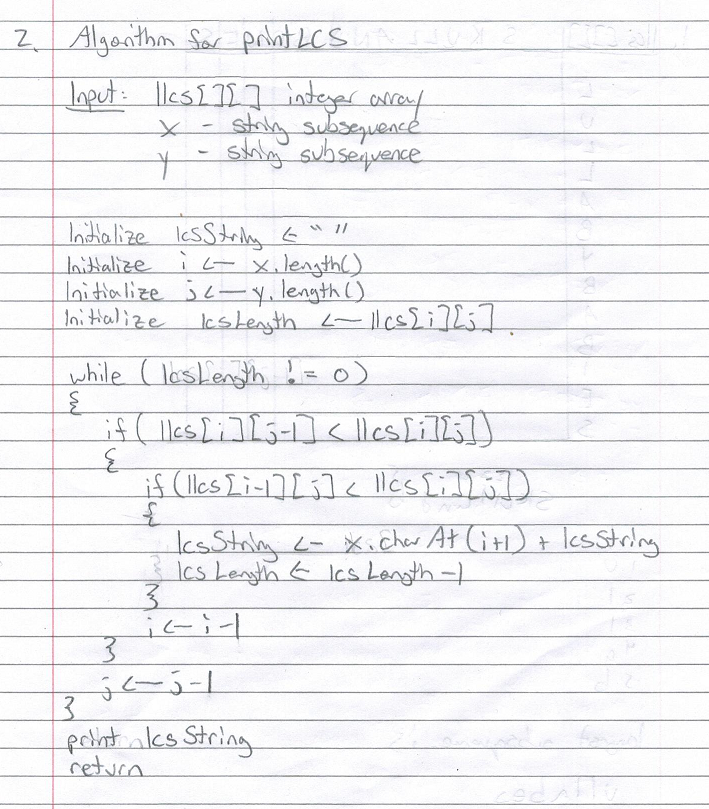 2. Algorithm for printLCS
Input: llcs[][] integer array
x - string subsequence
y - string subsequence
Initialize lcsString ← " "
Initialize i ← x.length()
Initialize j ← y.length()
Initialize lcsLength ← llcs[i][j]
while (lcsLength != 0)
{
if( llcs[i][j-1] < llcs[i][j])
{
if(llcs[i-1][j] < llcs[i][j])
{
lcsString ← x.charAt(i+1) + lcsString
lcsLength ← lcsLength -1
}
i ← i-1
}
j ← j-1
}
print lcsString
return